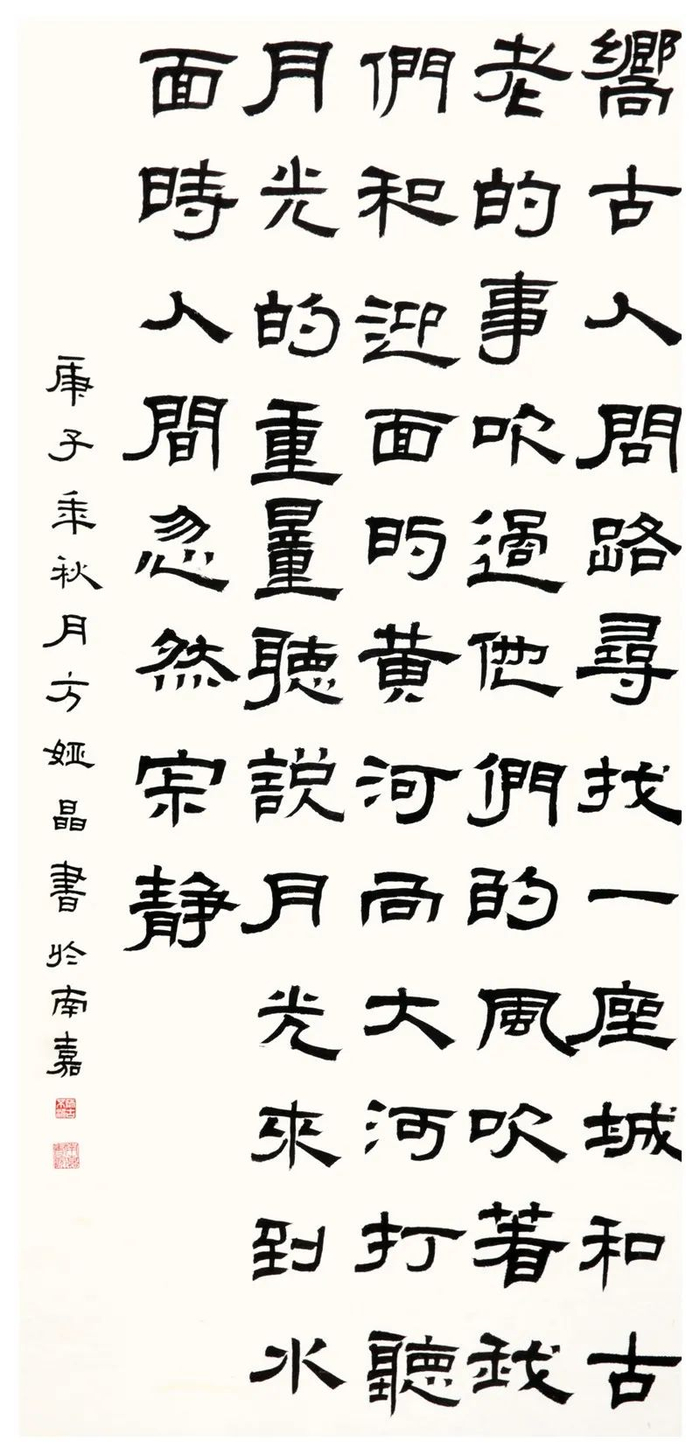 嚮古人問路尋找一座城和古
老的事吹過他們的風吹著我
們和迎面的黃河向大河打聽
月光的重量聽説月光來到水
面時人間忽然寂靜
庚子年秋月方婭晶書於南嘉